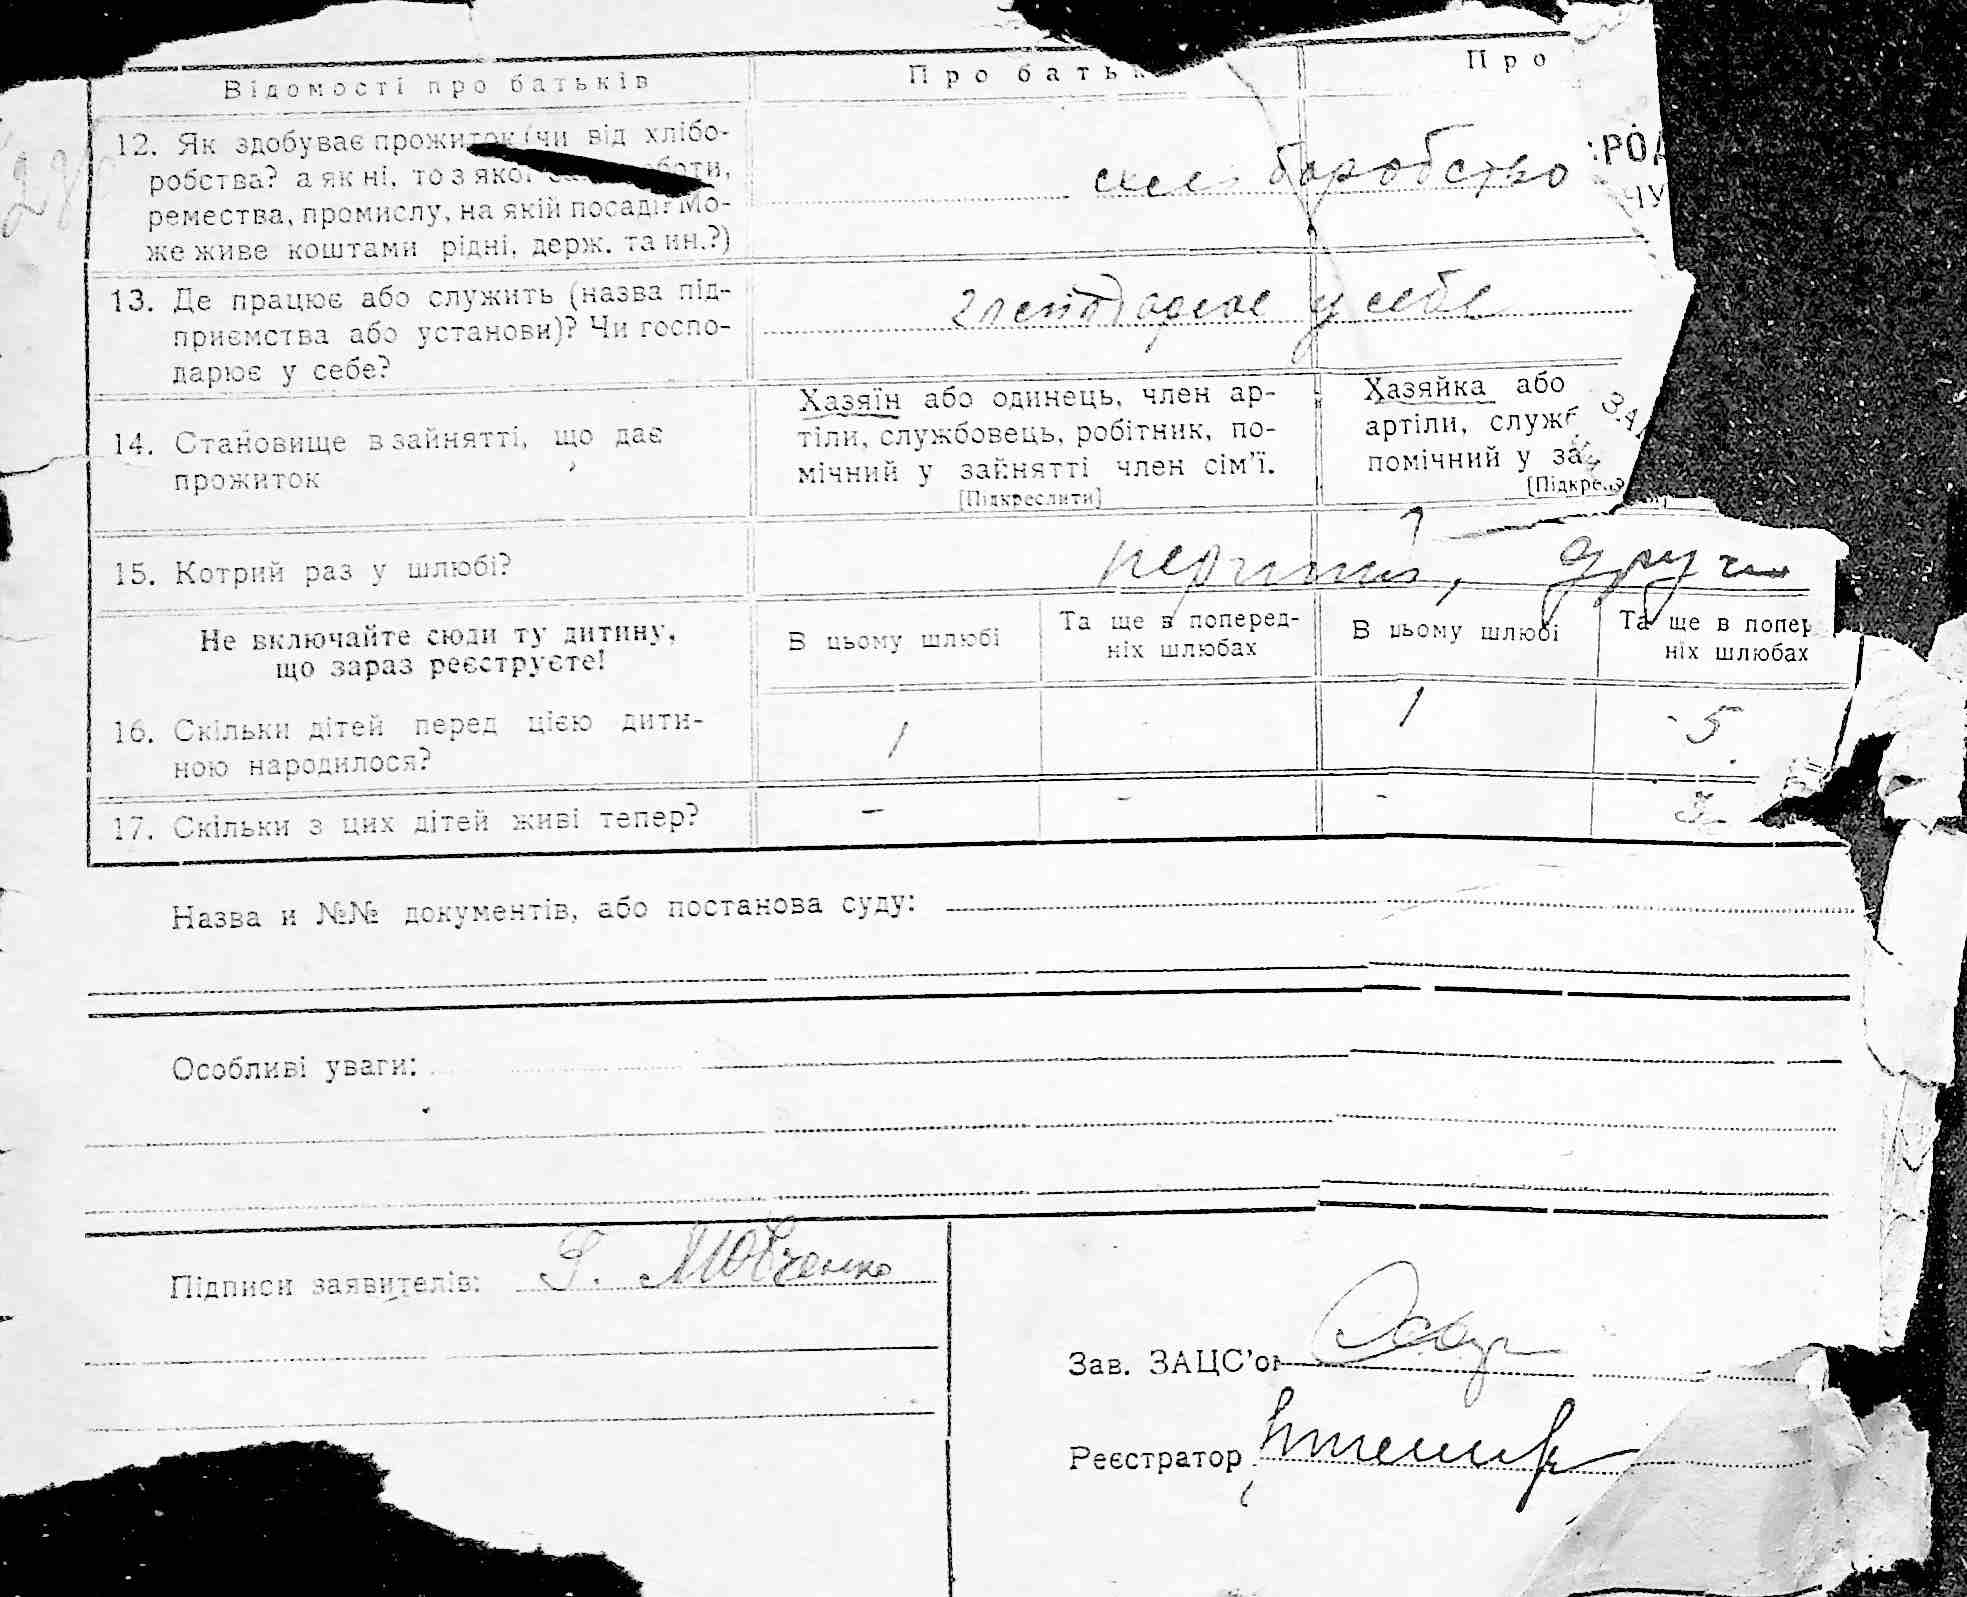 Відомості про батьків
Про батьк
Про
12. Як здобуває прожиток (чи від хлібо-
робства? а як ні, то з якої роботи,
ремества, промислу, на якій посаді? Мо-
же живе коштами рідні, держ. та ин.?)
боробство
:РОД
ЧУ
13. Де працює або служить (назва під-
приємства або установи)? Чи госпо-
дарює у себе?
у себе
14. Становище в зайнятті, що дає
прожиток
Хазяїн або одинець, член ар-
тіли, службовець, робітник, по-
мічний у зайнятті член сім'ї.
[Підкреслити]
Хазяйка або
артіли, служб
помічний у за
[Підкре
ЗА
15. Котрий раз у шлюбі?
перший,
Не включайте сюди ту дитину,
що зараз реєструєте!
В цьому шлюбі
Та ще в поперед-
ніх шлюбах
В цьому шлюбі
Та ще в попер
ніх шлюбах
16. Скільки дітей перед цією дити-
ною народилося?
1 - 1 - 5
17. Скільки з цих дітей живі тепер?
- - -
Назва и №№ документів, або постанова суду:
Особливі уваги:
Підписи заявителів: Мовченко
Зав. ЗАЦС'ом
Реєстратор